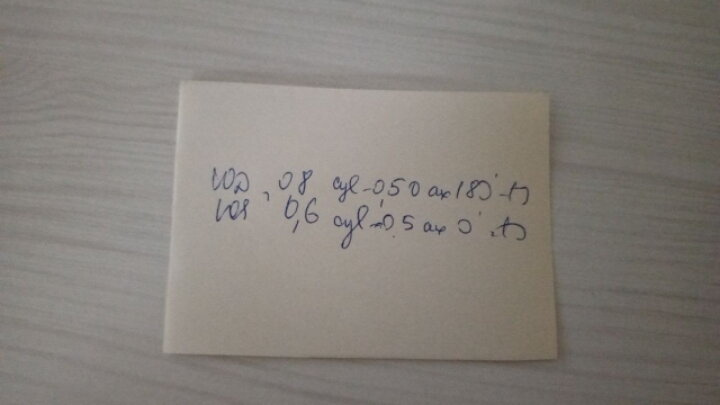 VOD = 0,8 cyl -0,50 ax 180° -1,0
VOS 0,6 cyl -0,5 ax 0° -1,0